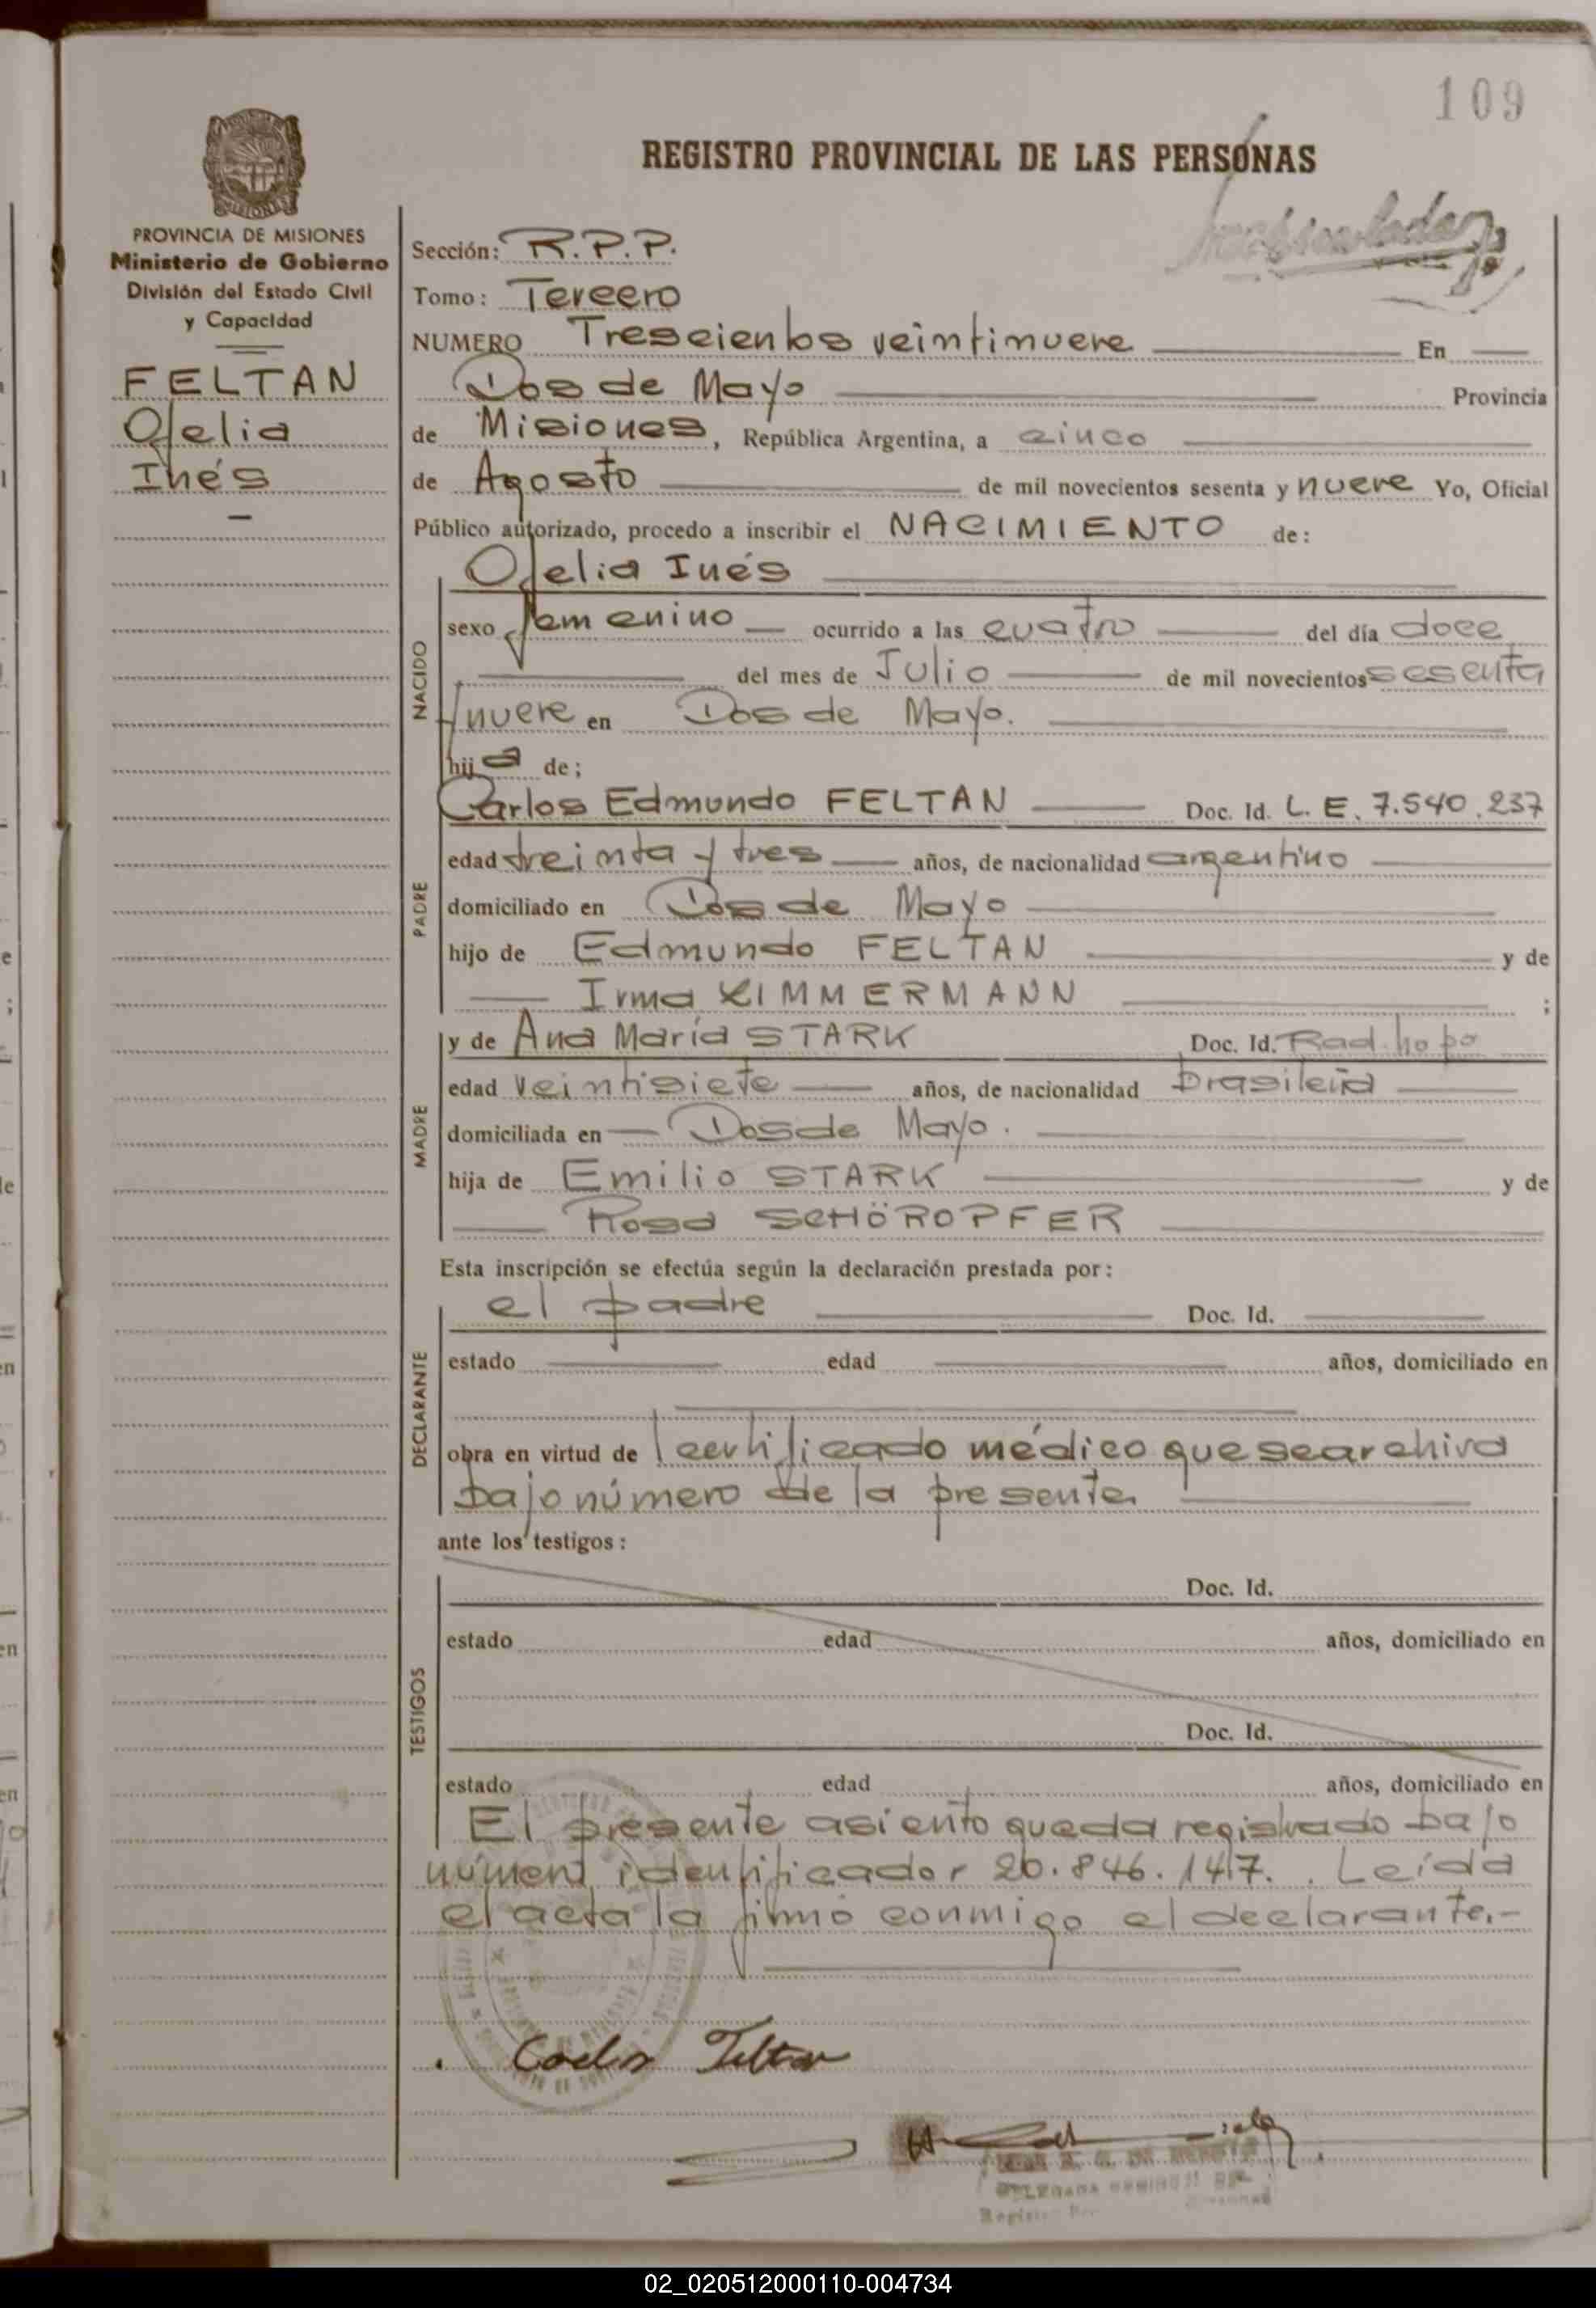 109
REGISTRO PROVINCIAL DE LAS PERSONAS
MISIONES
PROVINCIA DE MISIONES
Ministerio de Gobierno
División del Estado Civil
y Capacidad
FELTAN
Ofelia
Inés
Sección: R.P.P.
Tomo: Tercero
NUMERO Trescientos veintinueve En
Dos de Mayo Provincia
de Misiones, República Argentina, a cinco
de Agosto de mil novecientos sesenta y nueve Yo, Oficial
Público autorizado, procedo a inscribir el NACIMIENTO de:
NACIDO
Ofelia Inés
sexo femenino ocurrido a las cuatro del día doce
del mes de Julio de mil novecientos sesenta
y nueve en Dos de Mayo.
hij a de;
PADRE
Carlos Edmundo FELTAN Doc. Id. L.E. 7.540.237
edad treinta y tres años, de nacionalidad argentino
domiciliado en Dos de Mayo
hijo de Edmundo FELTAN y de
Irma ZIMMERMANN ;
MADRE
y de Ana María STARK Doc. Id. Rad.
edad veintisiete años, de nacionalidad brasileña
domiciliada en Dos de Mayo.
hija de Emilio STARK y de
Rosa SCHÖROPFER
Esta inscripción se efectúa según la declaración prestada por:
DECLARANTE
el padre Doc. Id.
estado edad años, domiciliado en
obra en virtud de certificado médico que se archiva
bajo número de la presente
ante los testigos:
TESTIGOS
Doc. Id.
estado edad años, domiciliado en
Doc. Id.
estado edad años, domiciliado en
El presente asiento queda registrado bajo
número identificador 20.846.147. Leída
el acta la firmó conmigo el declarante.-
Carlos Feltan
02_020512000110-004734